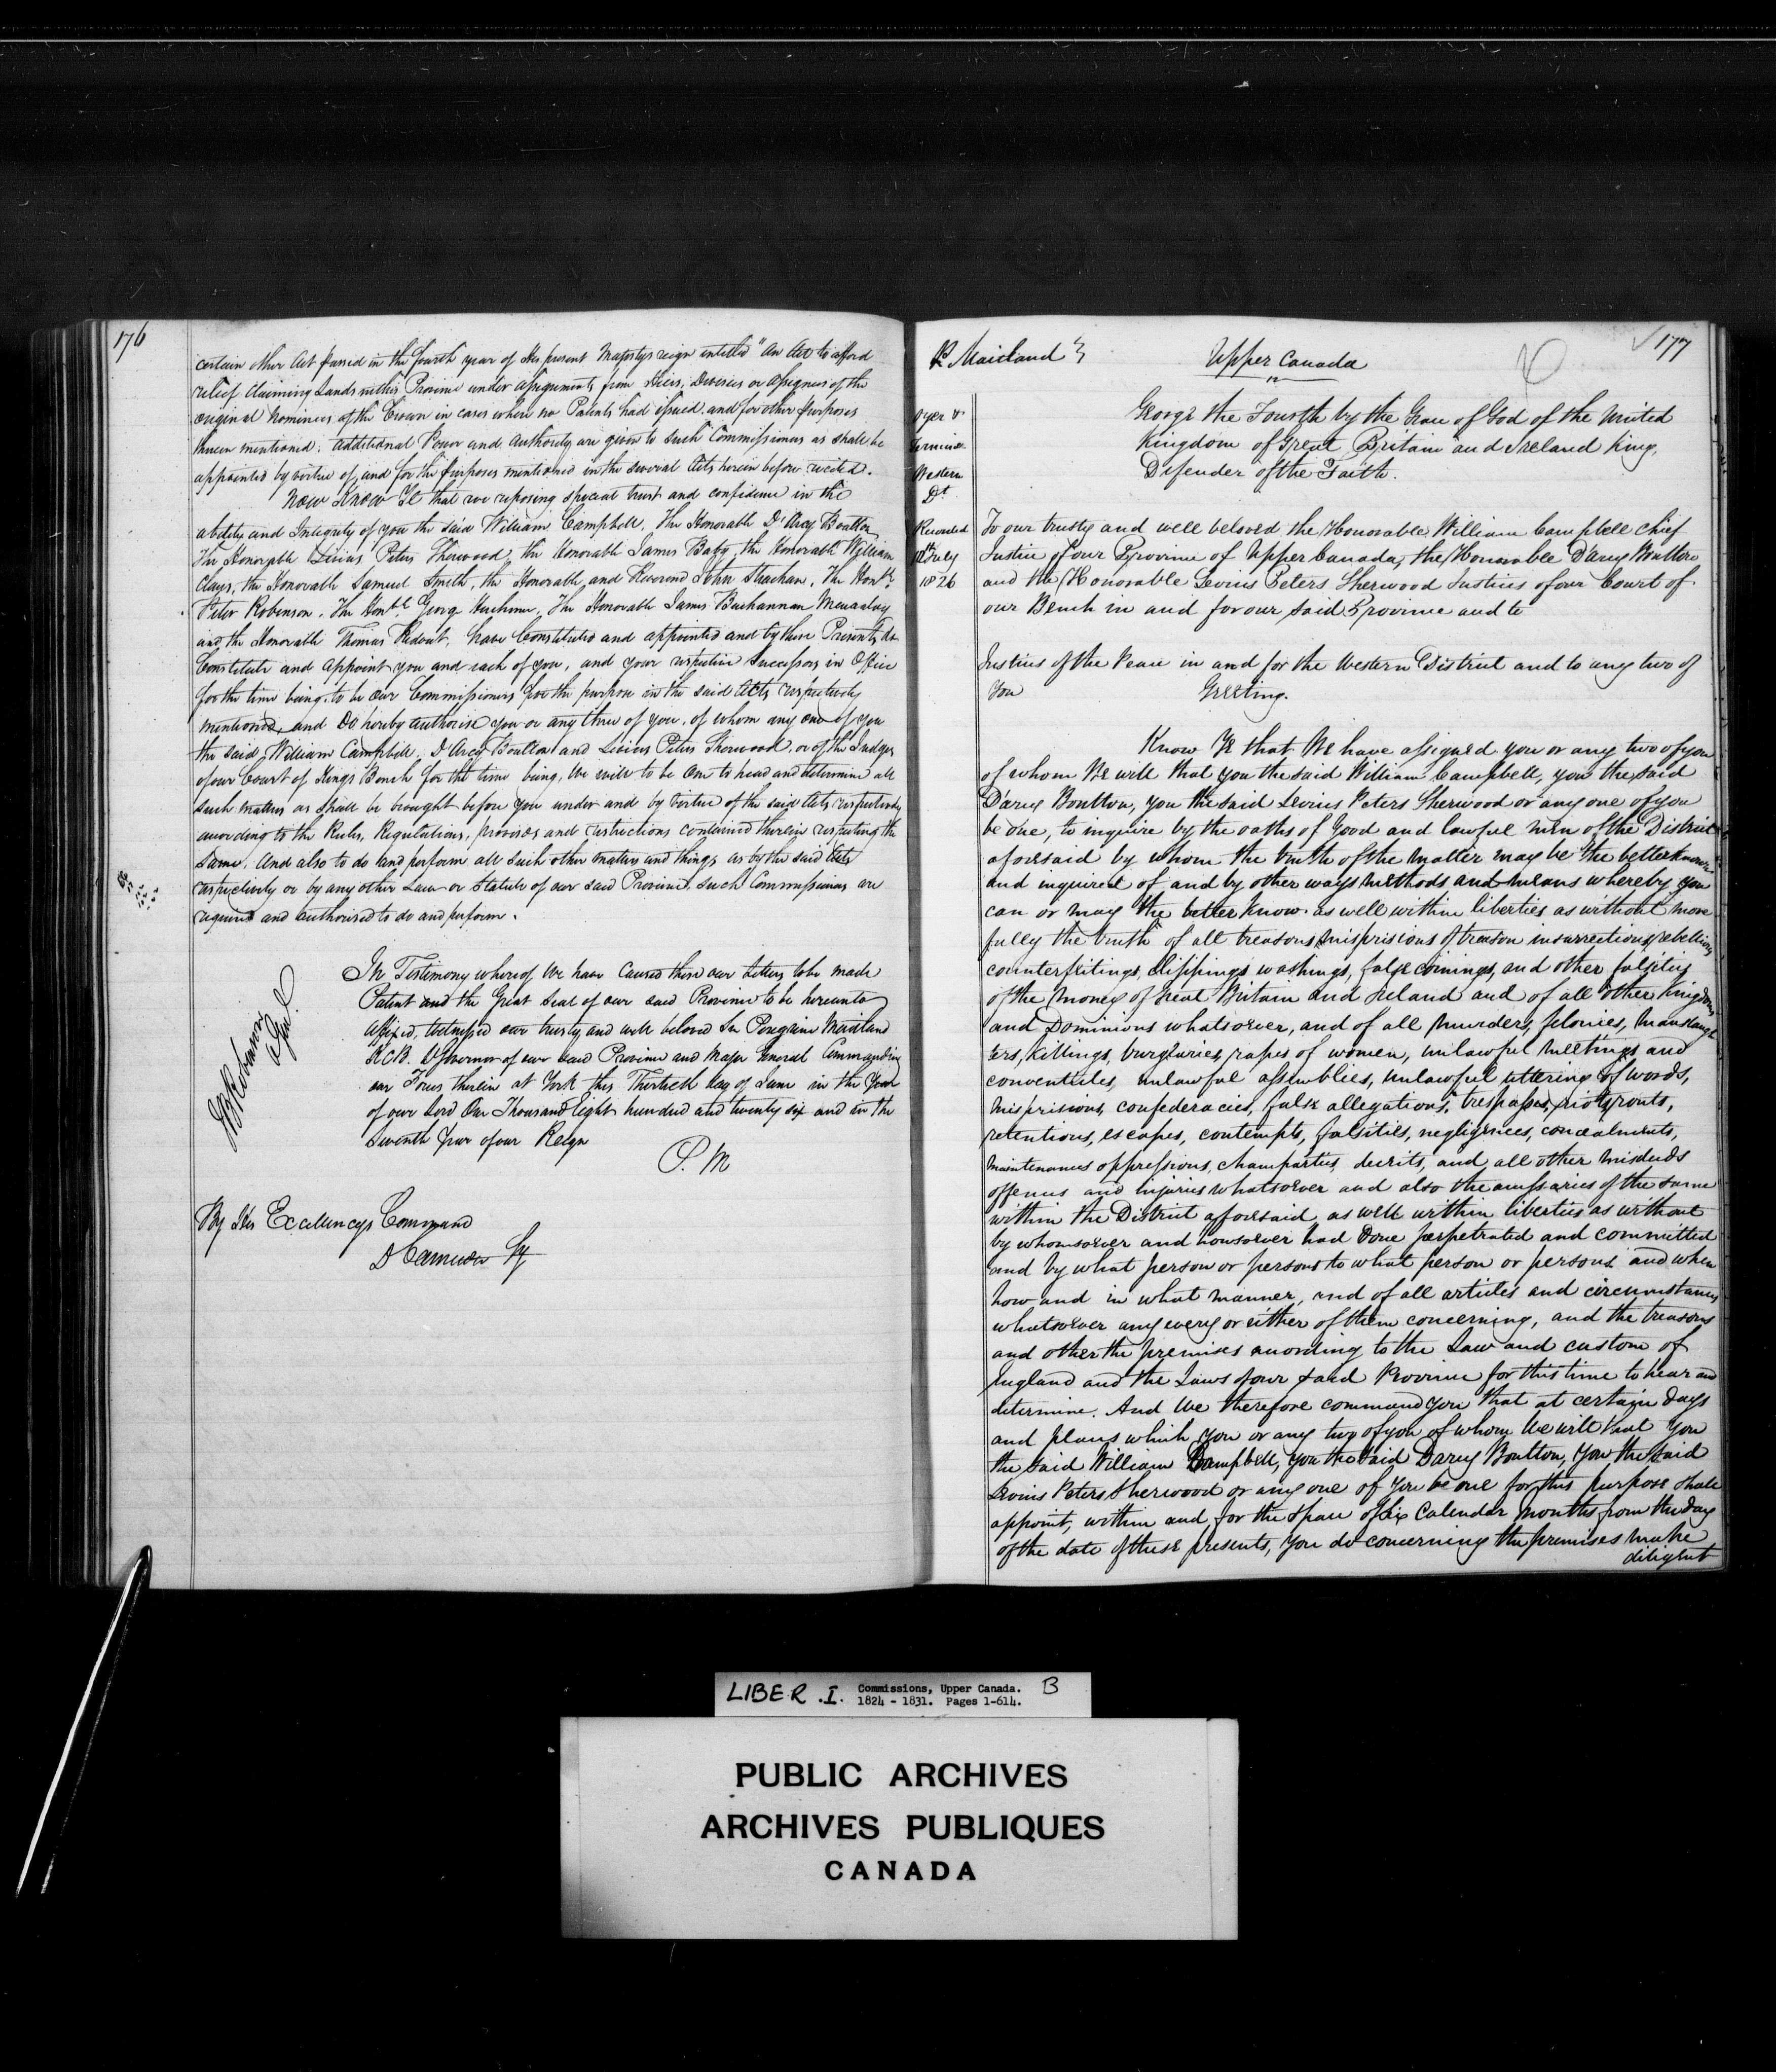 176
certain other Act passed in the fourth year of His present Majestys reign intitled "An Act to afford
relief Claiming Lands within Province under assignments from Heirs, Devisees or Assignees of the
original Nominees of the Crown in cases where no Patents had issued and for other purposes
therein mentioned; additional Power and Authority are given to such Commissioners as shall be
appointed by virtue of, and for the purposes mentioned in the several Acts herein before recited.
Now Know Ye that we reposing special trust and confidence in the
ability and Integrity of you the said William Campbell, The Honorable D'Arcy Boulton
The Honorable Livius Peters Sherwood, the Honorable James Baby, the Honorable William
Claus, the Honorable Samuel Smith, the Honorable and Reverend John Strachan, The Honble
Peter Robinson, The Honble George Herchimer, The Honorable James Buchannan Macaulay
and the Honorable Thomas Ridout, have Constituted and appointed and by these Presents do
Constitute and Appoint you and each of you, and your respective Successors in Office
for the time being, to be our Commissioners for the purpose in the said Acts respectively
mentioned and Do hereby authorise you or any three of you, of whom any one of you
the said William Campbell, D'Arcy Boulton and Livius Peters Sherwood, or of the Judges
of our Court of Kings Bench for the time being, We will to be One to hear and determine all
such matters as shall be brought before you under and by virtue of the said Acts respectively
according to the Rules, Regulations, provisos and restrictions contained therein respecting the
same. And also to do and perform all such other matters and things as by the said Acts
respectively or by any other Law or Statute of our said Province, such Commissioners are
required and authorised to do and perform.
In Testimony whereof We have Caused these our Letters to be made
Patent and the Great Seal of our said Province to be hereunto
affixed, Witnessed our trusty and well beloved Sir Peregrine Maitland
K.C.B. Lt Governor of our said Province and Major General Commanding
our Forces therein at York this Thirtieth day of June in the Year
of our Lord One Thousand Eight hundred and twenty six and in the
Seventh Year of our Reign
P. M
J B Robinson
A Genl.
By His Excellencys Command
D Cameron Sy
177
P Maitland
Upper Canada
George the Fourth by the Grace of God of the United
Kingdom of Great Britain and Ireland King,
Defender of the Faith.
Oyer &
Terminer
Western
Dt
Recorded
July
1826
To our trusty and well beloved the Honorable William Campbell Chief
Justice of our Province of Upper Canada, the Honorable D'arcy Boulton
and the Honorable Levius Peters Sherwood Justices of our Court of
our Bench in and for our said Province and to
Justices of the Peace in and for the Western District and to any two of
You Greeting.
Know Ye that We have assigned you or any two of you
of whom We will that you the said William Campbell, you the said
D'arcy Boulton, you the said Levius Peters Sherwood or any one of you
be one, to inquire by the oaths of Good and lawful men of the District
aforesaid by whom the truth of the matter may be the better known
and inquired of and by other ways methods and means whereby you
can or may the better know as well within liberties as without more
fully the truth of all treasons, misprisions of treason insurrections, rebellions
counterfeitings, clippings washings, false coinings, and other falsities
of the money of Great Britain and Ireland and of all other Kingdoms
and Dominions whatsoever, and of all murders, felonies, manslaugh
ters, killings, burglaries, rapes of women, unlawful meetings and
conventicles, unlawful assemblies, unlawful uttering of words,
misprisions, confederacies, false allegations, trespasses, riots, routs,
retentions, escapes, contempts, falsities, negligences, concealments,
maintenances oppressions, champarties, deceits, and all other misdeeds
offences and injuries whatsoever and also the accessaries of the same
within the District aforesaid as well within liberties as without
by whomsoever and howsoever had done perpetrated and committed
and by what person or persons to what person or persons and when
how and in what manner, and of all articles and circumstances
whatsoever any every or either of them concerning, and the treasons
and other the premises according to the Law and custom of
England and the Laws of our said Province for this time to hear and
determine. And We therefore command you that at certain days
and places which you or any two of you of whom We will that You
the said William Campbell, you the said Darcy Boulton, You the said
Levius Peters Sherwood or any one of you be one for this purpose shall
appoint, within and for the space of Six Calendar months from the day
of the date of these presents, you do concerning the premises make
diligent
LIBER .I. Commissions, Upper Canada. B
1824 - 1831. Pages 1-614.
PUBLIC ARCHIVES
ARCHIVES PUBLIQUES
CANADA